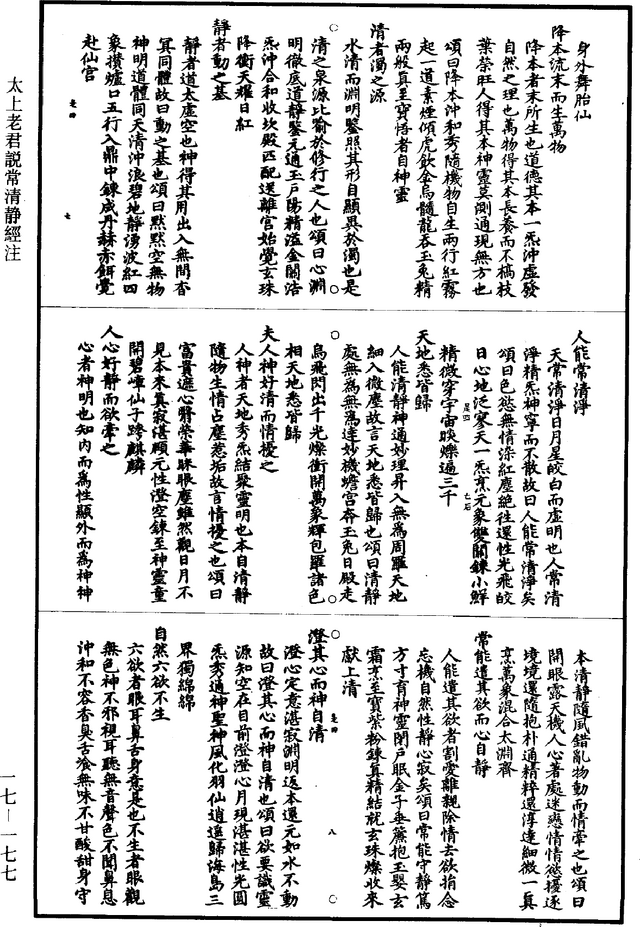 身外舞胎仙
降本流末而生萬物
降本者末所生也道德其本一炁沖虛發
自然之理也萬物得其本長養而不槁枝
葉榮旺人得其本神靈莫測通現無方也
頌曰降本沖和秀隨機物自生兩行紅霧
起一道素煙頌虎飲金烏髓龍吞玉兔精
兩般真至寶悟者自神靈
清者濁之源
水清而淵明鑒照其形自顯異於濁也是
清之泉源比喻於修行之人也頌曰心淵
明徹底道靜鑒元通玉戶陽精溢金關浩
炁沖合和收坎殿匹配還離宮始覺玄珠
降衝天耀日紅
靜者動之基
靜者道太虛空也神得其用出入無間杳
冥同體故曰動之基也頌曰默默空無物
神明道體同天清沖浪碧地靜湧波紅四
象攢爐口五行入鼎中鍊成丹赫赤餌覺
赴仙宮
人能常清淨
天常清淨日月星皎白而虛明也人常清
淨精炁神寧而不散故曰人能常清淨矣
頌曰色慾無情染紅塵絕往還性光飛皎
日心地泛寒天一炁烹元象雙關鍊小鮮
精微穿宇宙晱爍遍三千
天地悉皆歸
人能清靜神通妙理昇入無為周羅天地
細入微塵故言天地悉皆歸也頌曰清靜
處無為無為達妙機蟾宮奔玉兔日殿走
烏飛閃出千光燦衝開萬象輝包羅諸色
相天地悉皆歸
夫人神好清而情擾之
人神者天地秀炁結聚靈明也本自清靜
隨物生情占塵惹垢故言情擾之也頌曰
富貴遮心翳榮華眯眼塵雖然觀日月不
見本來真寂湛順元性澄空鍊至神靈童
開碧嶂仙子跨麒麟
人心好靜而欲牽之
心者神明也知內而為性顯外而為神神
本清靜隨風錯亂物動而情牽之也頌曰
開眼露天機人心著處迷戀情情慾擾逐
境境還隨抱朴通精粹還淳達細微一真
烹萬象混合太淵齊
常能遣其欲而心自靜
人能遣其欲者割愛離親除情去欲捐念
忘機自然性靜心寂矣頌曰常能守靜篤
方寸育神靈閉戶眠金子垂簾抱玉嬰玄
霜烹至寶紫粉鍊真精結就玄珠燦收來
獻上清
澄其心而神自清
澄心定意湛寂淵明返本還元如水不動
故曰澄其心而神自清也頌曰欲要識靈
源知空在目前澄澄心月現湛湛性光圓
炁秀通神聖神風化羽仙逍遙歸海島三
界獨綿綿
自然六欲不生
六欲者眼耳鼻舌身意是也不生者眼觀
無色神不邪視耳聽無音聲色不聞鼻息
沖和不容香臭舌飡無味不甘酸甜身守
太上老君説常清靜經注
一七—一七七